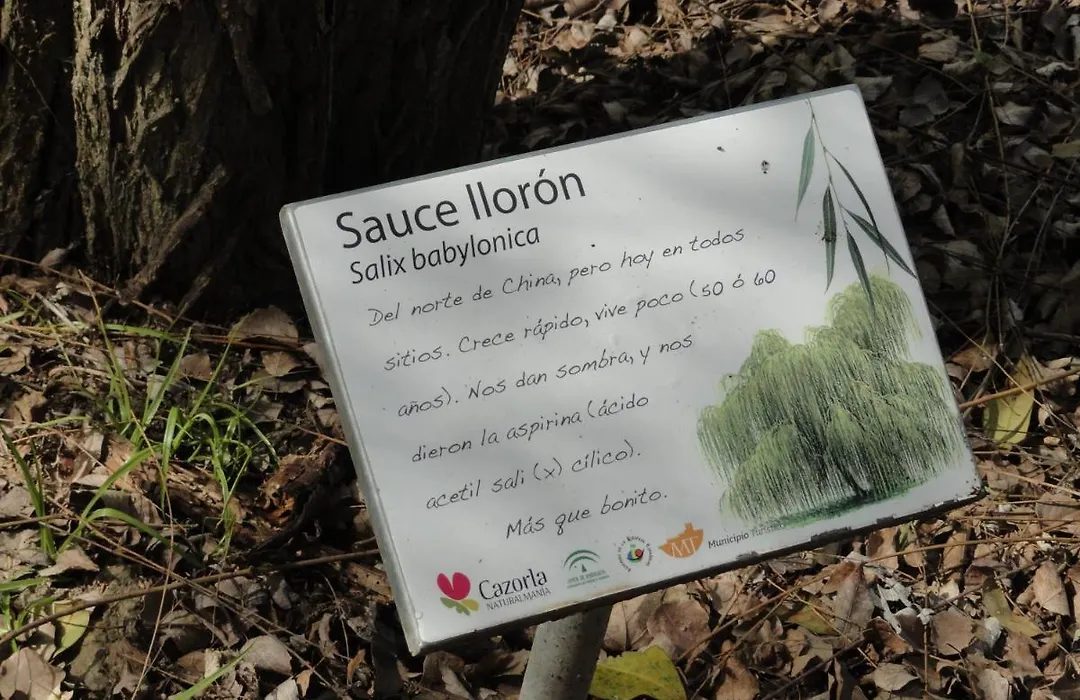 Sauce llorón
Salix babylonica
Del norte de China, pero hoy en todos
sitios. Crece rápido, vive poco (50 ó 60
años). Nos dan sombra, y nos
dieron la aspirina (ácido
acetil sali (x) cílico).
Más que bonito.
Cazorla
NATURALMANÍA
MT
Municipio